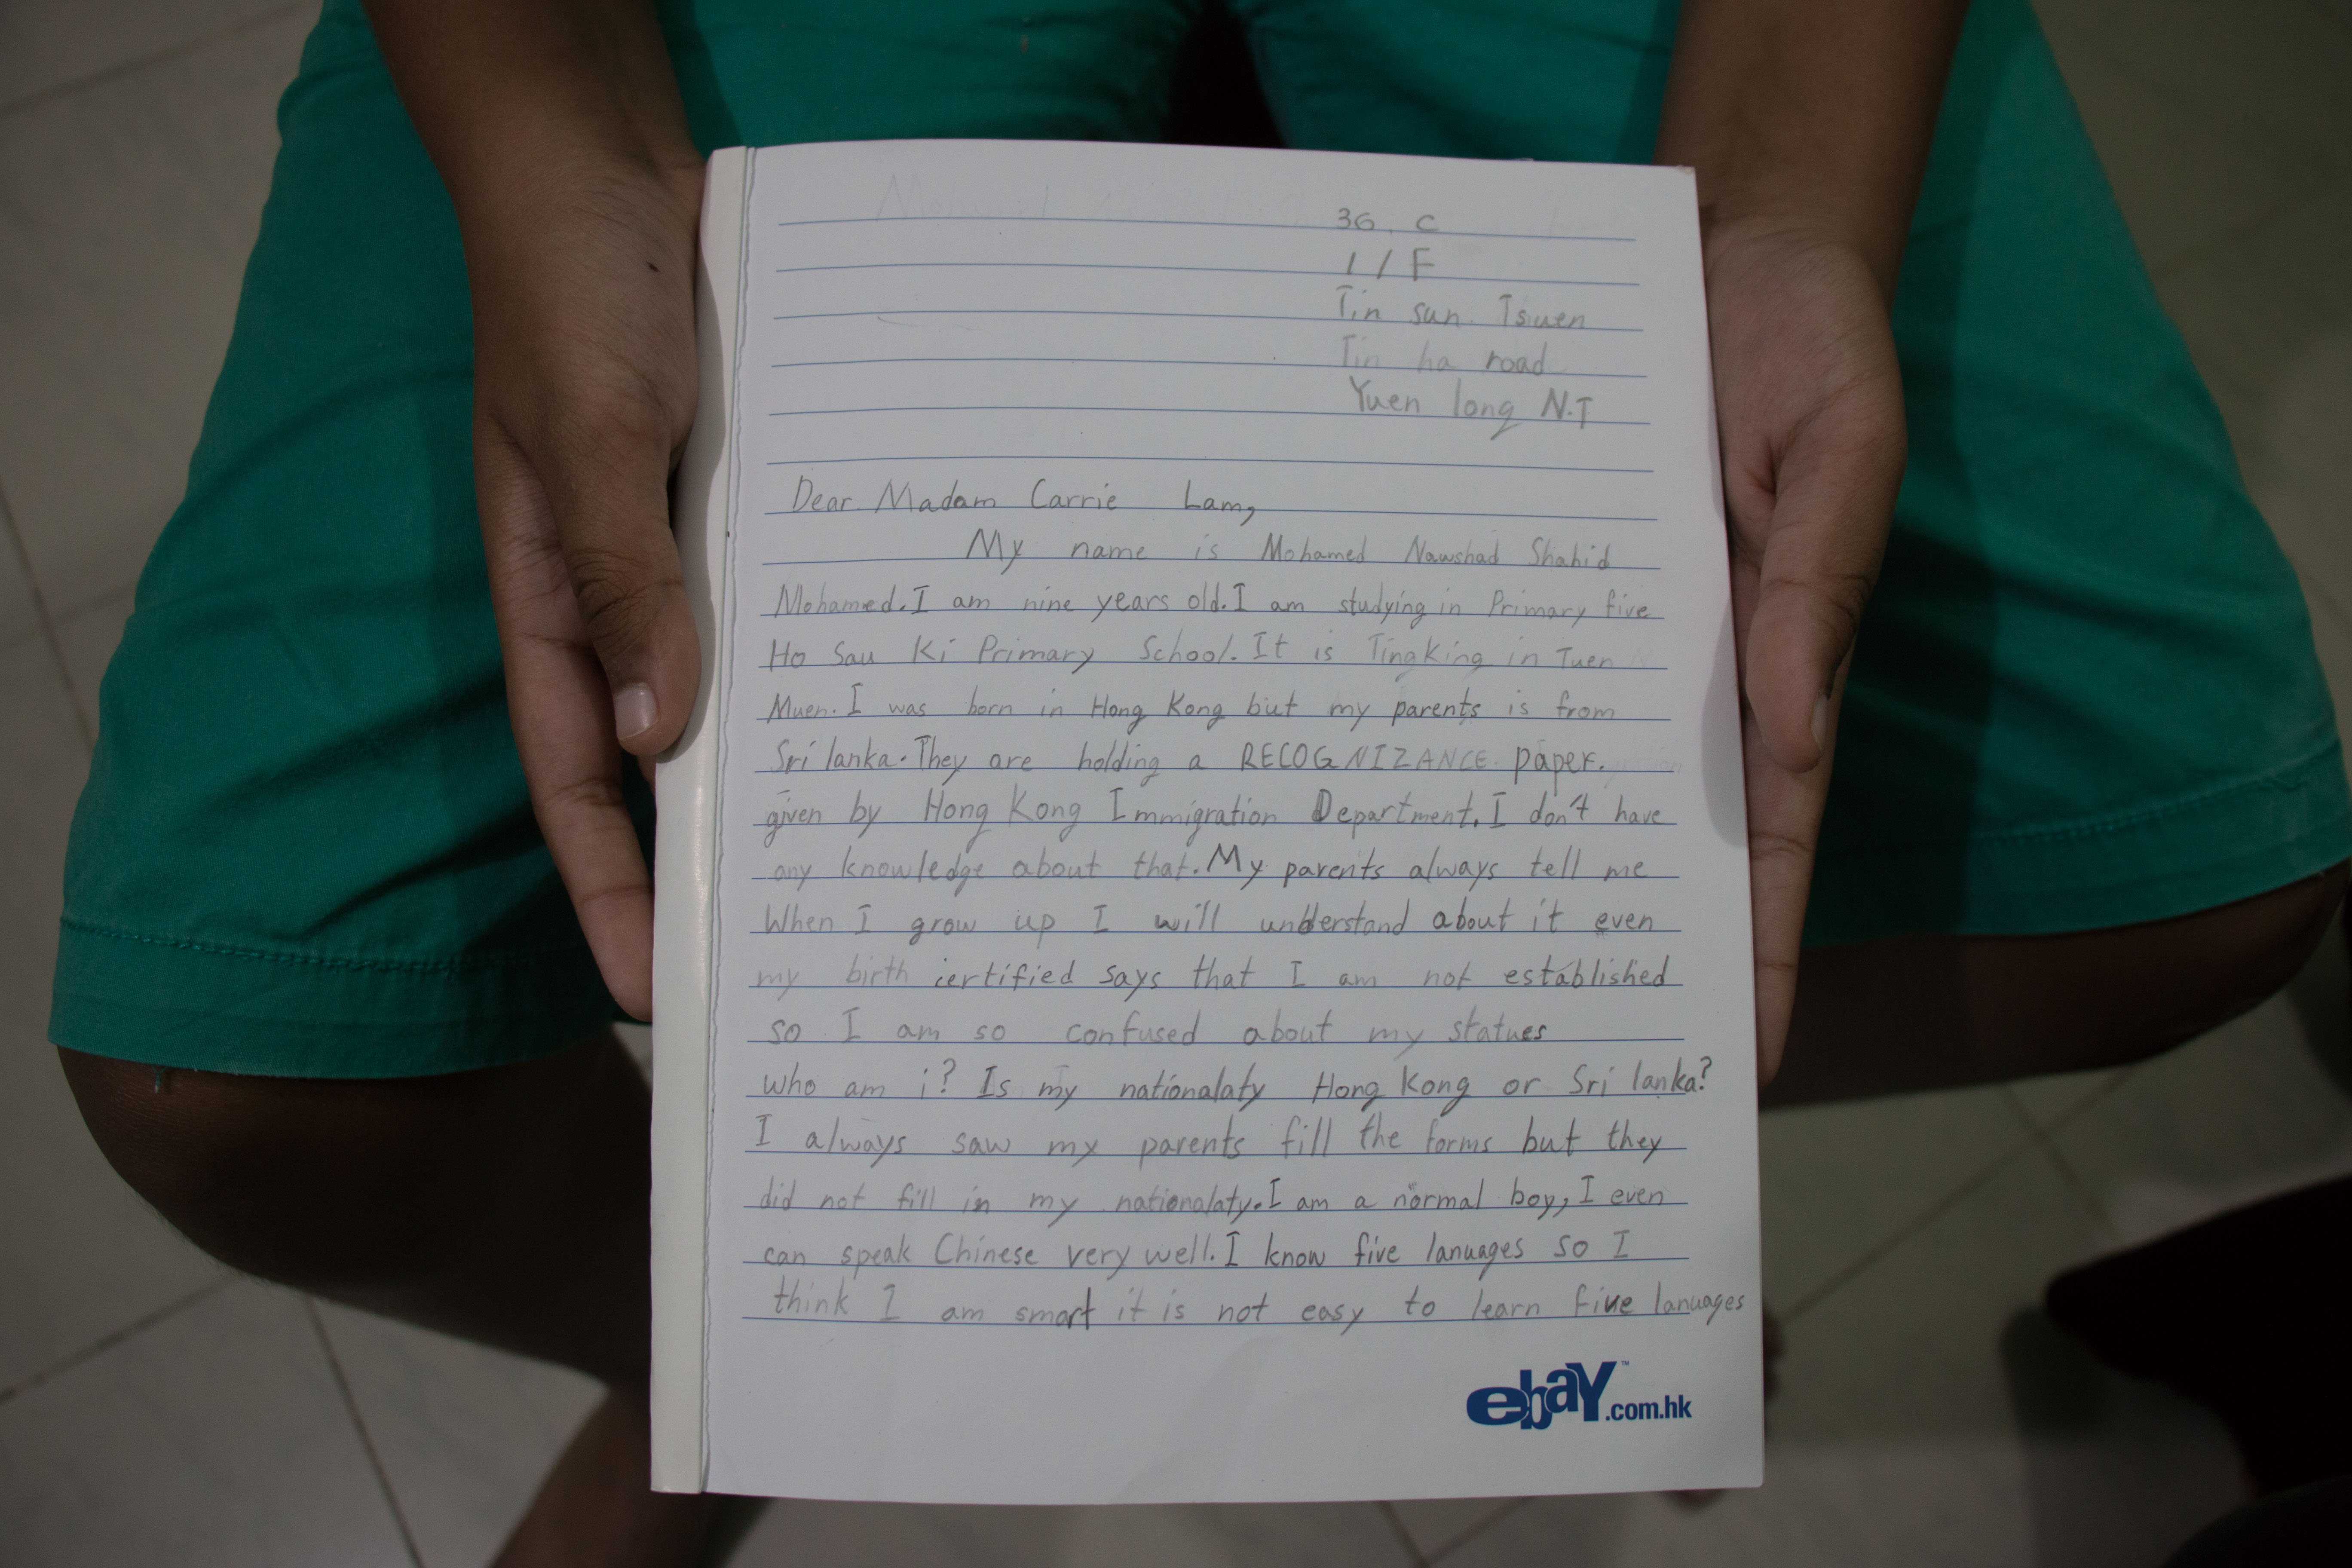 36, C
1/F
Tin sun Tsuen
Tin ha road
Yuen long N.T
Dear Madam Carrie Lam,
My name is Mohamed Nawshad Shahid
Mohamed. I am nine years old. I am studying in Primary five
Ho Sau Ki Primary School. It is Tingking in Tuen
Muen. I was born in Hong Kong but my parents is from
Sri lanka. They are holding a RECOGNIZANCE paper.
given by Hong Kong Immigration Department. I don't have
any knowledge about that. My parents always tell me
When I grow up I will understand about it even
my birth certified says that I am not established
so I am so confused about my statues
who am i? Is my nationalaty Hong Kong or Sri lanka?
I always saw my parents fill the forms but they
did not fill in my nationalaty. I am a normal boy, I even
can speak Chinese very well. I know five lanuages so I
think I am smart it is not easy to learn five lanuages
ebay™.com.hk